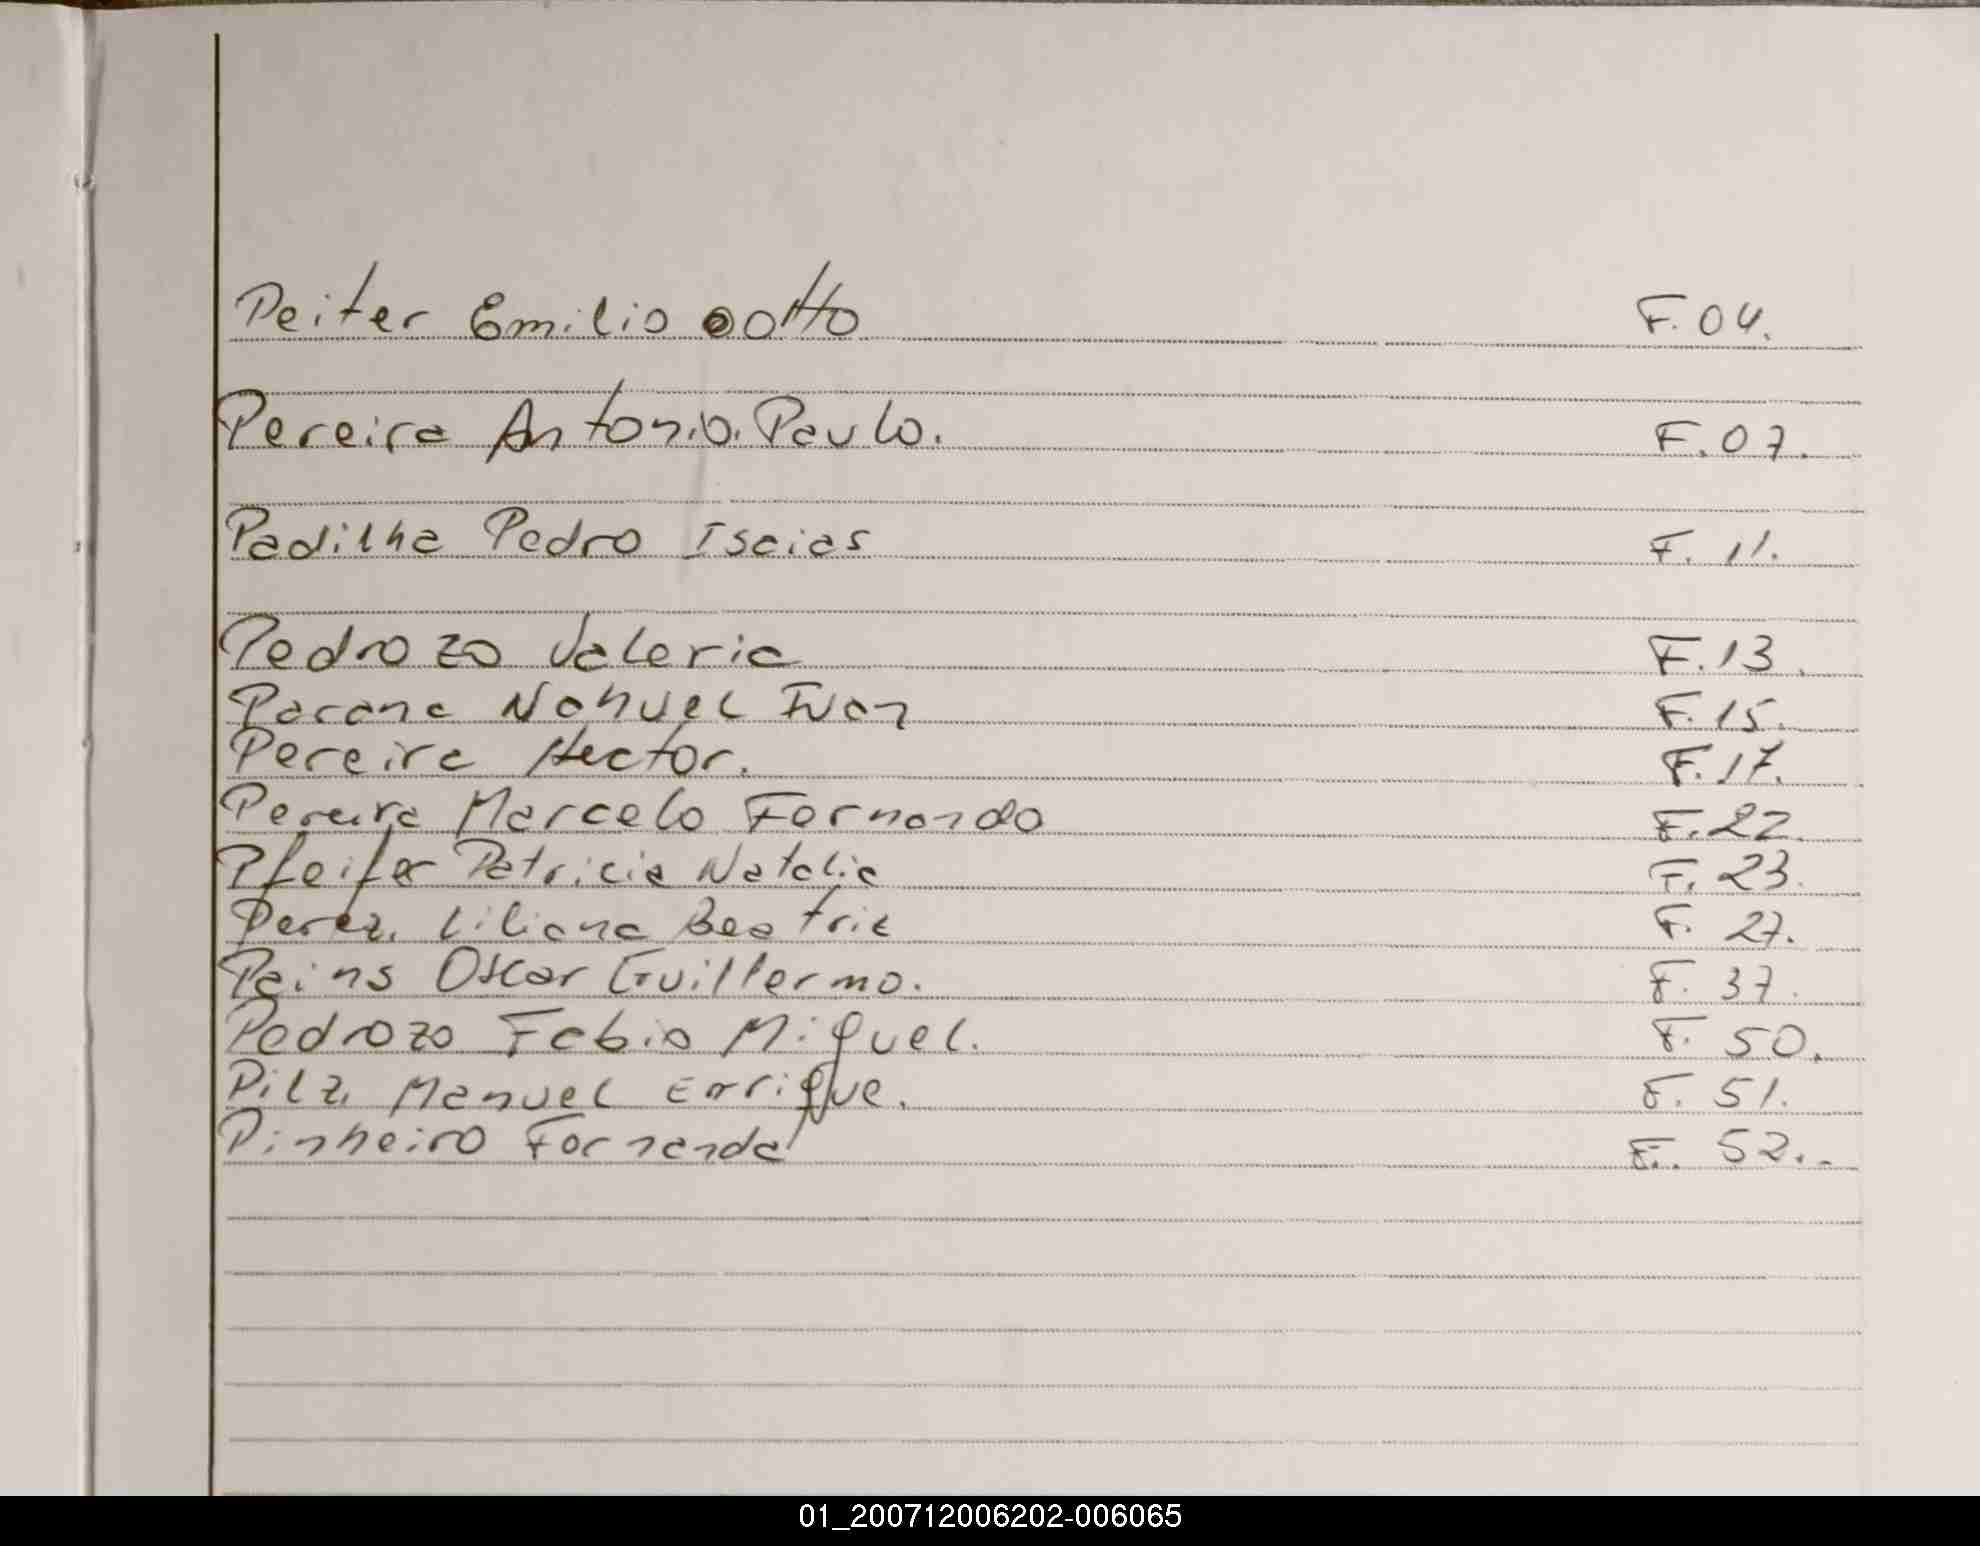 Peiter Emilio Otto F.04.
Pereira Antonio. Paulo. F.07.
Padilha Pedro Isaias F. 11.
Pedrozo Valeria F.13.
Parana Nahuel Ivan F.15.
Pereira Hector. F.17.
Pereira Marcelo Fernando F.22.
Pfeifer Patricia Natalia F. 23.
Perez. Liliana Beatriz F. 27.
Pains Oscar Guillermo. F. 37.
Pedrozo Fabio Miguel. F. 50.
Pilz. Manuel Enrique. F. 51.
Pinheiro Fernanda F. 52..-
01_200712006202-006065